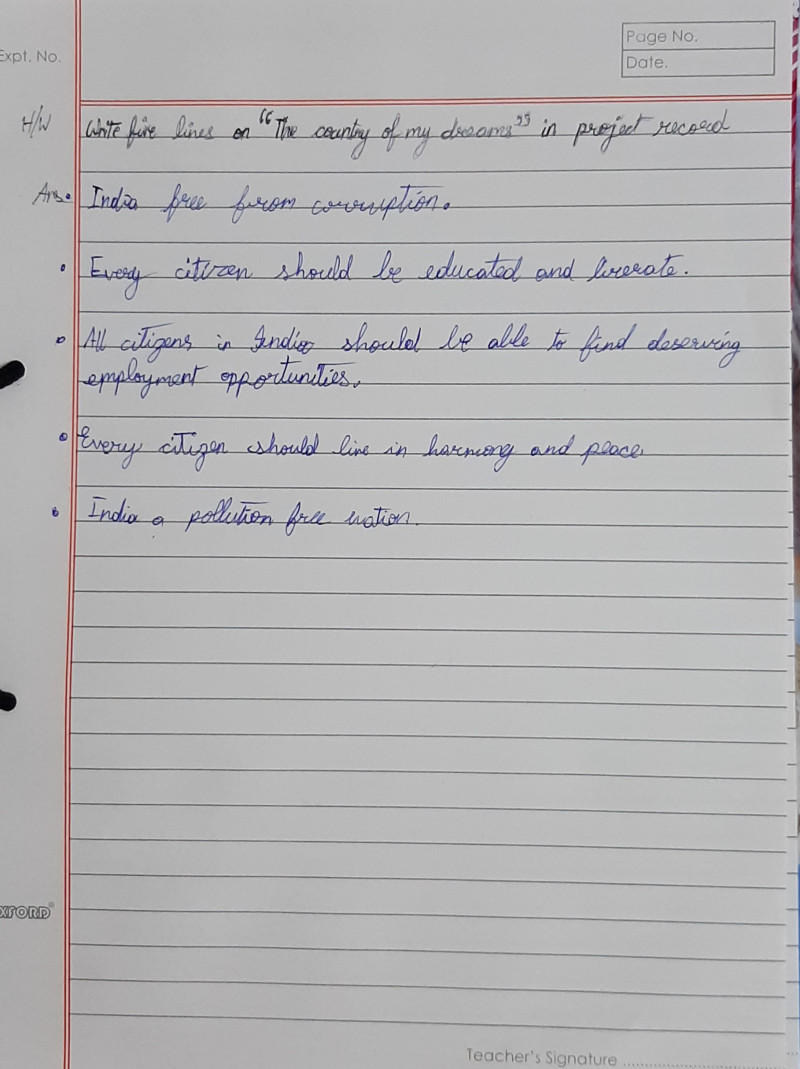 Page No.
Expt. No.
Date.
H/W Write five lines on "The country of my dreams" in project record
Ans. India free from corruption.
• Every citizen should be educated and literate.
• All citizens in India should be able to find deserving
employment opportunities.
• Every citizen should live in harmony and peace.
• India a pollution free nation.
XFORD
Teacher's Signature